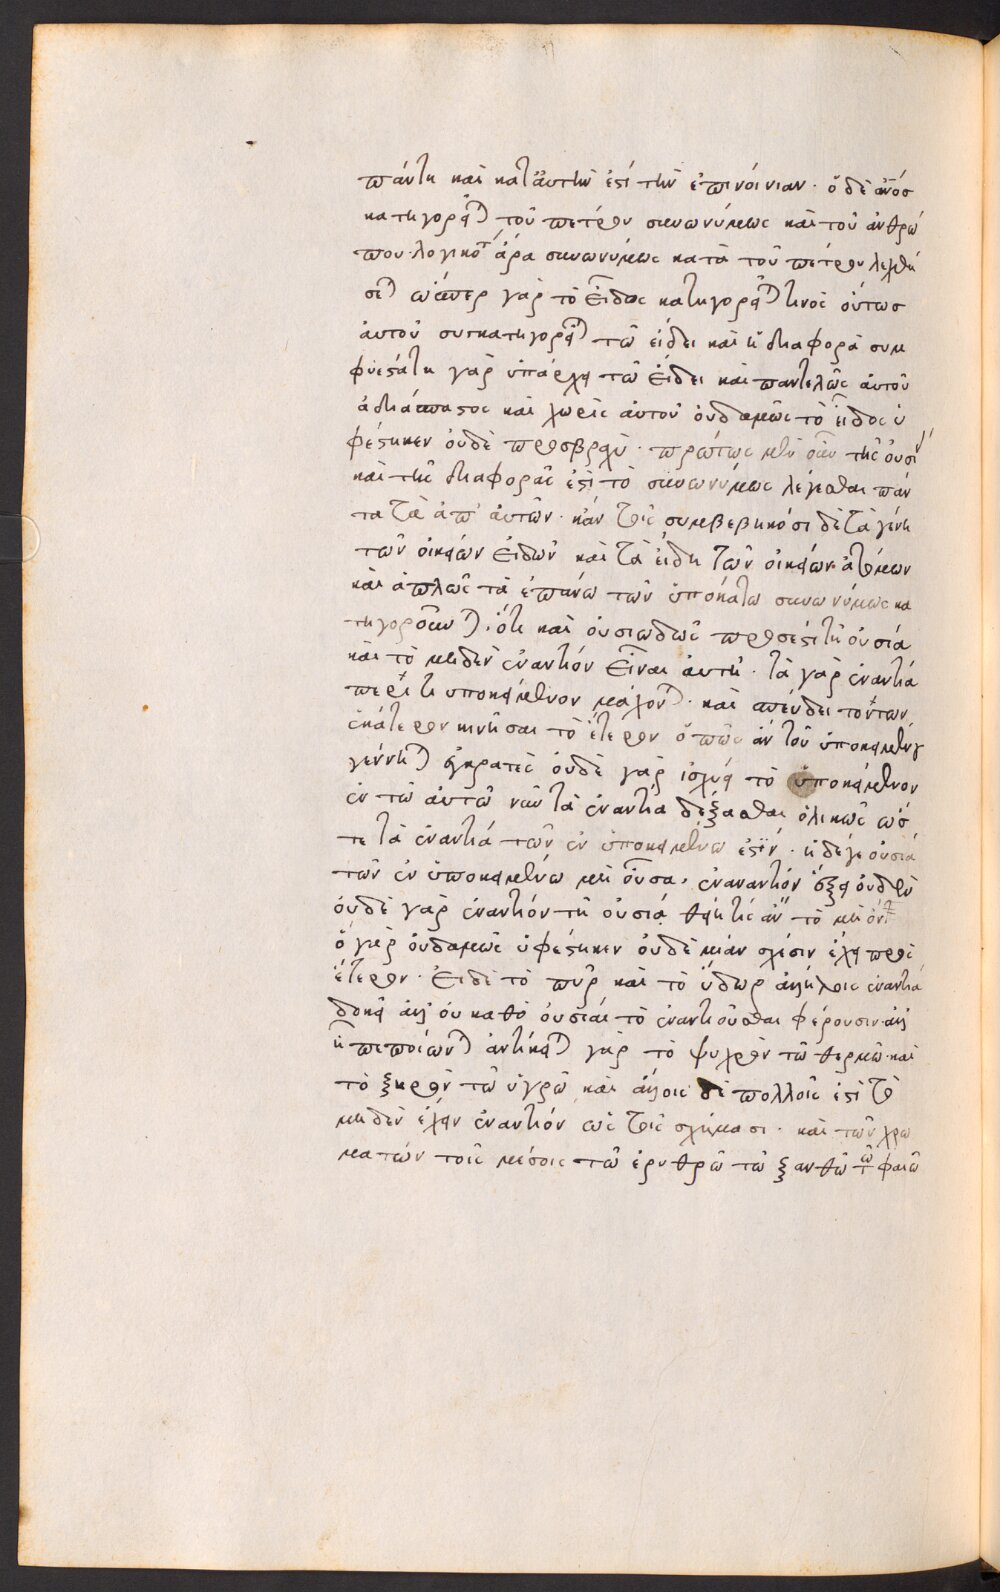 πάντη καὶ κατ᾽ ἀυτὴν ἐστὶ τὴν ἐπινόινιαν · ὁ δὲ ἄνος
κατηγορεῖται τοῦ πέτρου συνωνύμως καὶ τοῦ ἀνθρώ
που · λογικὸν ἄρα συνωνύμως κατὰ τοῦ πέτρου λεχθή
σεται ὥσπερ γὰρ τὸ εἶδος κατηγορεῖται τινὸς οὕτως
ἀυτοῦ συγκατηγορεῖται τῶ εἴδει καὶ ἡ διαφορὰ συμ
φυεστάτη γὰρ ὑπάρχει τῶ εἴδει καὶ παντελῶς ἀυτοῦ
ἀδιάσπαστος καὶ χωρὶς ἀυτοῦ ὀυδαμῶς τὸ εἶδος ὑ
φέστηκεν ὀυδὲ προσβραχὺ · πρώτως μὲν οὖν τῆς ὀυσί
καὶ τῆς διαφορᾶς ἐστὶ τὸ συνωνύμως λέγεσθαι πάν
τα τὰ ἀπ᾽ ἀυτῶν · κἀν τοῖς συμβεβηκόσι δὲ τὰ γένη
τῶν οἰκείων εἰδῶν καὶ τὰ εἴδη τῶν οἰκείων ἀτόμων
καὶ ἁπλῶς τὰ ἐπάνω τῶν ὑποκάτω συνωνύμως κα
τηγοροῦνται · ὅτι καὶ ὀυσιωδῶς πρόσεστι τῆ ὀυσία
καὶ τὸ μηδὲν ἐναντίον εἶναι ἀυτῆ · τὰ γὰρ ἐναντία
περί τι ὑποκείμενον μάχονται · καὶ σπέυδει τούτων
ἑκάτερον κινῆσαι τὸ ἕτερον ὅπως ἂν τοῦ ὑποκειμένου
γένηται ἐγκρατὲς ὀυδὲ γὰρ ἰσχύει τὸ ὑποκείμενον
ἐν τῶ ἀυτῶ νῦν τὰ ἐναντία δέξασθαι ὁλικῶς ὥσ
τε τὰ ἐναντία τῶν ἐν ὑποκειμένω ἐστίν · ἡ δέγε ὀυσία
τῶν ἐν ὑποκειμένω μὴ οὖσα, ἐναναντίον ἕξει ὀυδὲν
ὀυδὲ γὰρ ἐναντίον τῆ ὀυσία θείη τίς ἂν τὸ μὴ ὄν
ὃ γὰρ ὀυδαμῶς ὑφέστηκεν ὀυδὲ μίαν σχέσιν ἔχει πρὸς
ἕτερον · εἰ δὲ τὸ πῦρ καὶ τὸ ὕδωρ ἀλλήλοις ἐναντία
δοκεῖ ἀλλ᾽ ὀυ καθὸ ὀυσίαι τὸ ἐναντιοῦσθαι φέρουσιν ἀλλ᾽
ἢ πεποίωνται ἀντίκειται γὰρ τὸ ψυχρὸν τῶ θερμῶ · καὶ
τὸ ξηρὸν τῶ ὑγρῶ καὶ ἄλλοις δὲ πολλοῖς ἐστὶ τὸ
μηδὲν ἔχειν ἐναντίον ὡς τοῖς σχήμασι · καὶ τῶν χρω
μάτων τοῖς μέσοις τῶ ἐρυθρῶ τῶ ξανθῶ τῶ φαιῶ